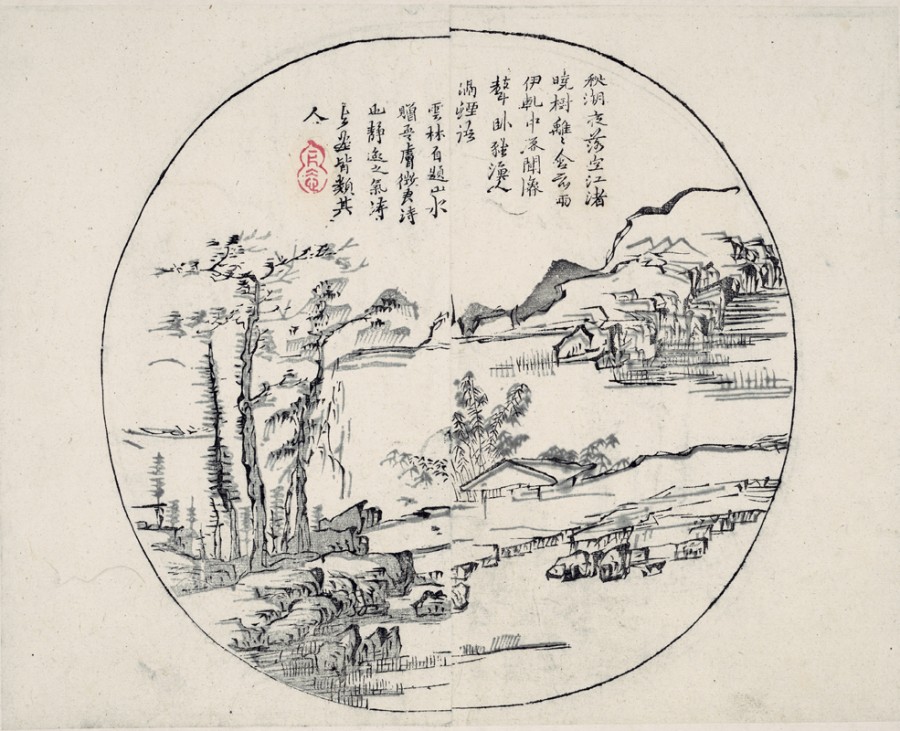 秋潮夜落空江渚
曉樹離〻含宿雨
伊軋中流聞櫓
聲臥聽漁人
隔煙語
雲林自題山水
贈膚徵君詩
幽靜逸之氣詩
與畫皆類其
人